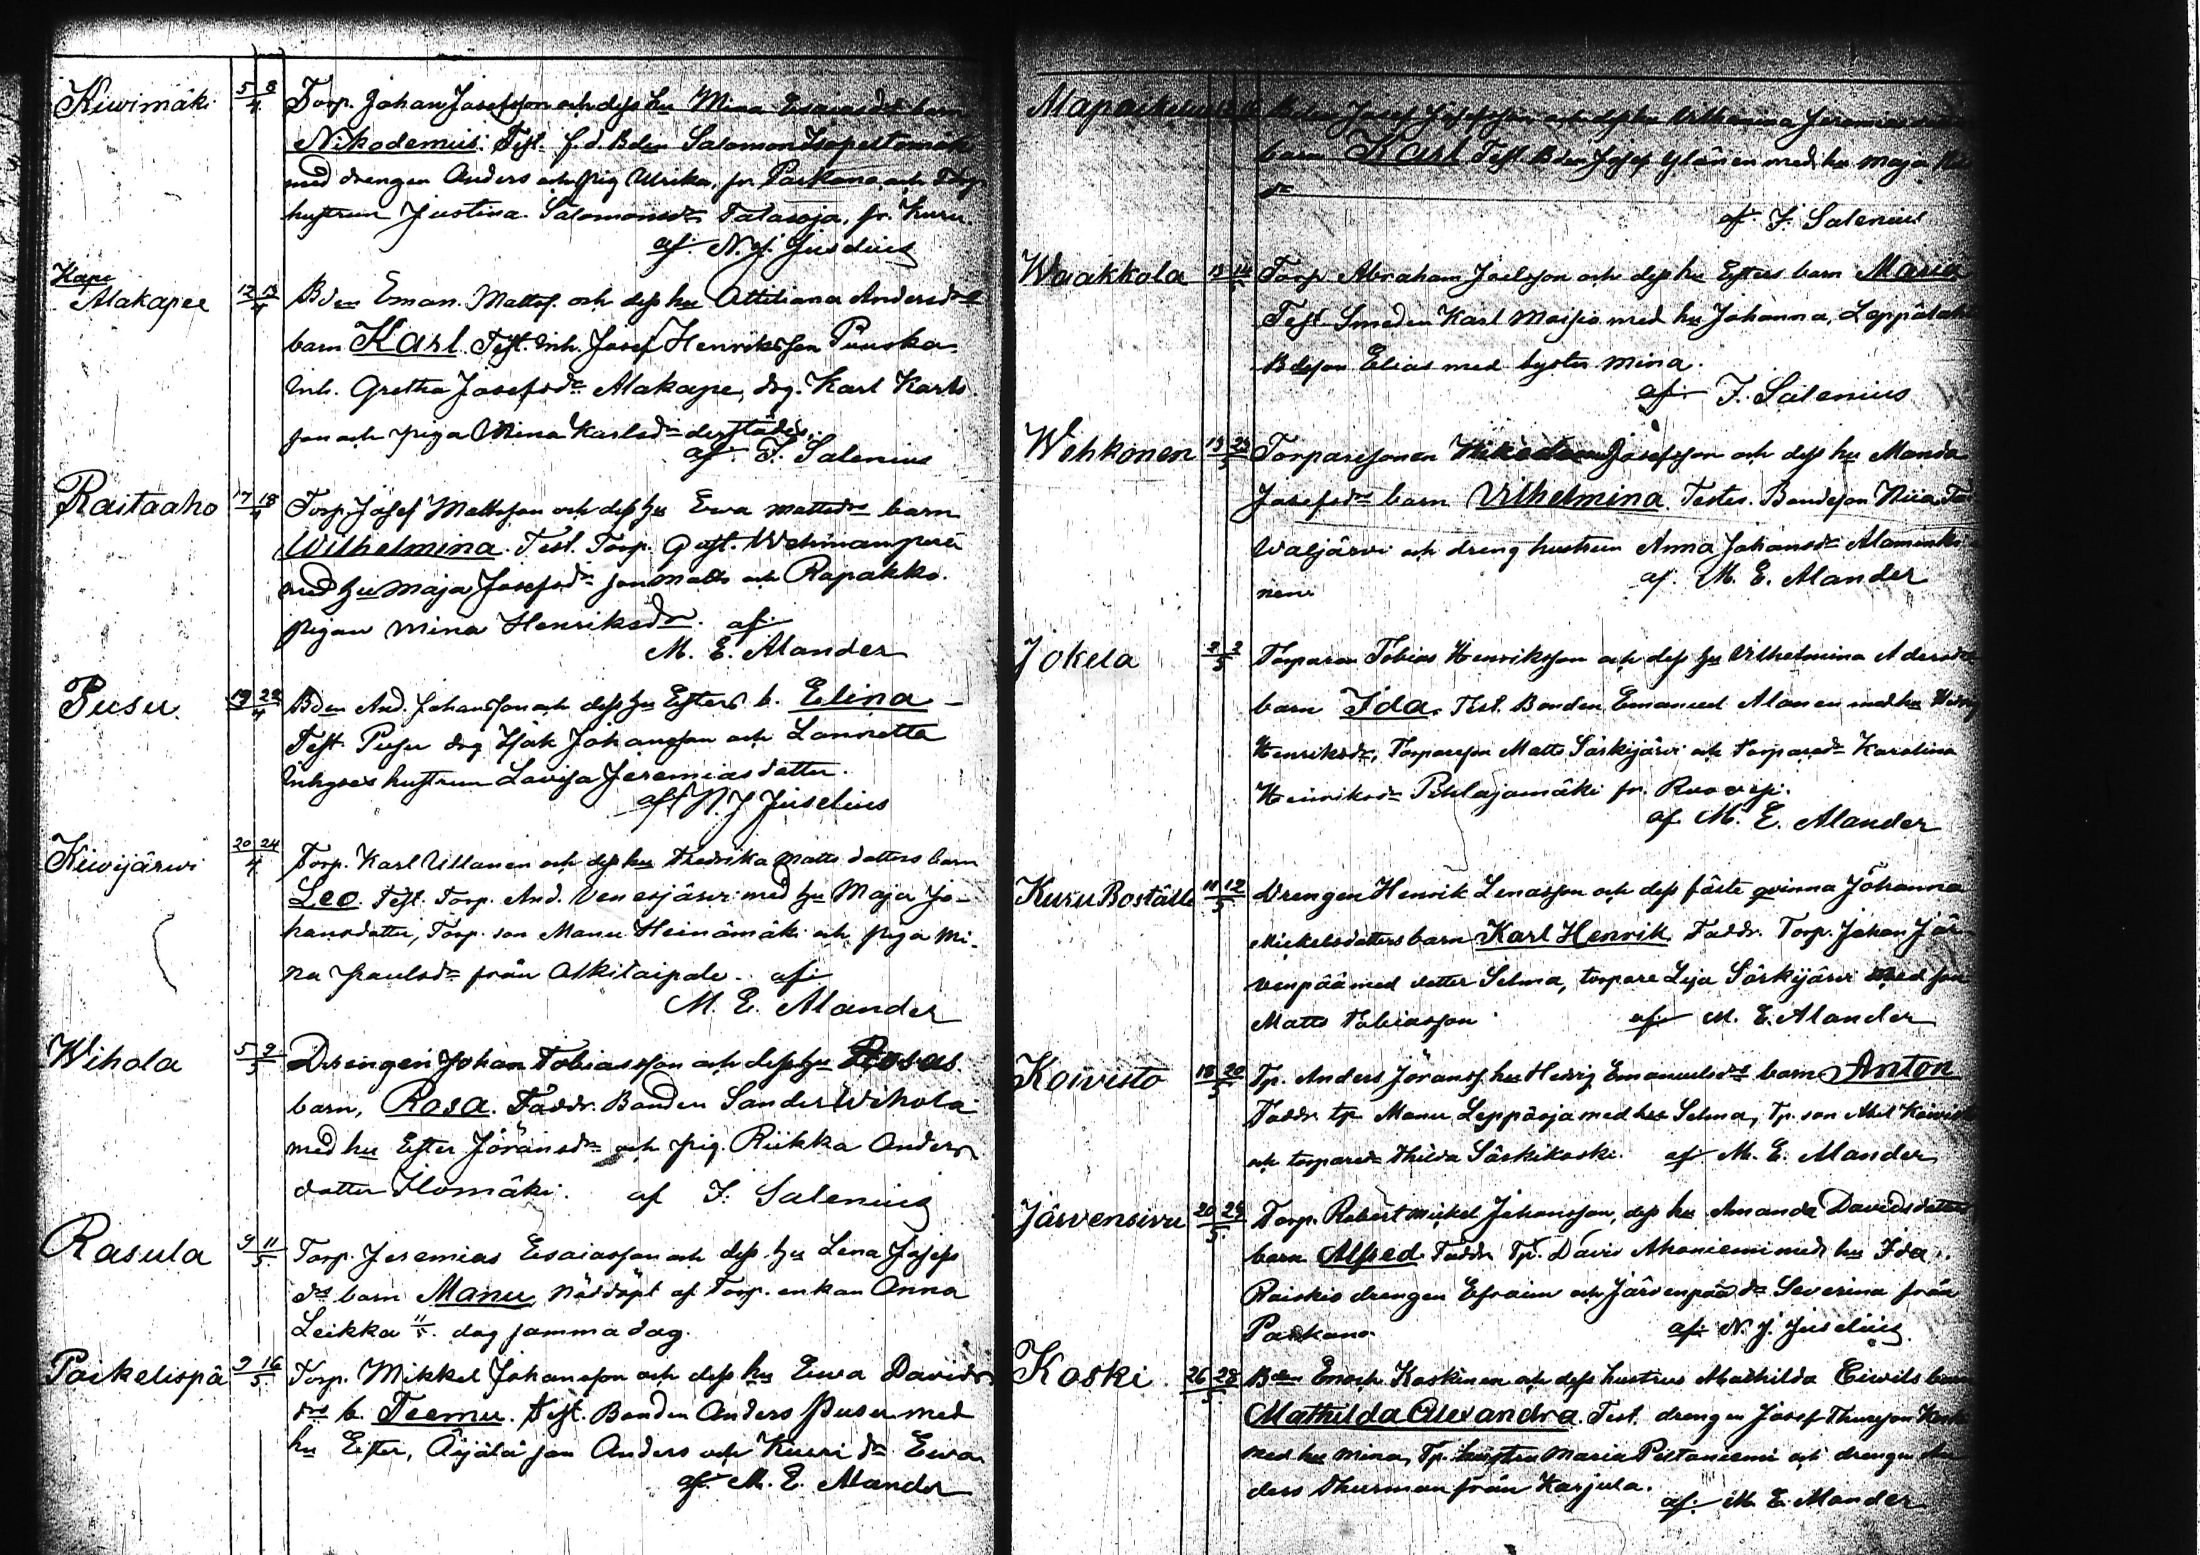 Kiwimäki 5 8/4 Torp. Johan Josefsson och dess hu Mina Esaiasdrs barn
Nikodemus. Test. f.d. Bden Salomon Isopeltomäki
med drengen Anders och pig Ulrika, fr. Parkano och Torp
hustrun Justina Salomonsdr Talasoja, fr. Kuru.
af. N. J. Juselius
Kape
Alakapee 12 13/4 Bden Eman. Mattss. och dess hu Attiliana Andersdrs
barn Karl. Test. Inh. Josef Henriksson Puuska
Inh. Gretha Josefsdr Alakape, drg. Karl Karls
son och piga Mina Karlsdr derstädes.
af F. Salenius
Raitaaho 17 18/4 Torp. Josef Mattsson och dess hu Ewa Mattsdrs barn
Wilhelmina. Test. Torp. Gust. Wehmaanperä
med hu Maja Josefsdr son Matts och Rapakko
pigan Mina Henriksdr. af
M. E. Alander
Pusu. 19 22/4 Bden And. Johansson och dess hu Esters b. Elina
Test. Pusu drg Isak Johansson och Lonnette
Inhyses hustrun Lovisa Jeremiasdotter.
af N. J. Juselius
Kiwijärwi 20 24/4 Torp. Karl Ullanen och dess hu Fredrika Mattsdotters barn
Leo. Test. Torp. And. Venesjärwi med hu Maja Jo-
hansdotter, Torp. son Manu Heinämäki och piga Mi-
na Paulsdr från Alkitaipale. af
M. E. Alander
Wihola 5 9/5 Drengen Johan Tobiasson och dess hu Rosas
barn, Rosa. Faddr. Bonden Sander Wihola
med hu Ester Jöransdr och pig. Riikka Anders
dotter Ilomäki. af F. Salenius
Rasula 9 11/5 Torp. Jeremias Esaiasson och dess hu Lena Josefs
drs barn Manu, nöddöpt af Torp. enkan Anna
Leikka 11/5. dog samma dag.
Paikelispä 9 16/5 Torp. Mikkel Johansson och dess hu Ewa Davids
drs b. Teemu. Test. Bonden Anders Pusu med
hu Ester, Äijälä son Anders och Kuuri dr Ewa
af. M. E. Alander
Bden Josef Josefsson och dess hu Vilhelmina Jeremias
barn Karl Test Bden Josef Ylänen med hu Maja
dr
af. F. Salenius
Waakkola 13 14 Torp Abraham Joelsson och dess hu Esters barn Maria
Test. Smeden Karl Maisio med hu Johanna, Leppälah
Bdeson Elias med syster Mina.
af F. Salenius
Wehkonen 15 23/5 Torparesonen Josefsson och dess hu Manda
Josefsdrs barn Vilhelmina. Testes. Bondeson Niia
Waljärvi och dreng hustrun Anna Johansdr Alaminki
nen. af. M. E. Alander
Jokela 2 2/5 Torparen Tobias Henriksson och dess hu Vilhelmina Adersdrs
barn Ida. Test. Bonden Emanuel Alanen med hu Hedvig
Henriksdr, Torpareson Matts Särkijärvi och torparedr Karolina
Henriksdr Pihlajamäki fr. Ruovesi.
af M. E. Alander
Kuru Boställe 11 12/5 Drengen Henrik Lenasson och dess fäste qvinna Johanna
Mickelsdotters barn Karl Henrik. Faddr. Torp. Johan Jär
venpää med dotter Selma, torpare Lija Särkijärvi med son
Matts Tobiasson af M. E. Alander
Koivisto 18 20/5 Tp. Anders Jöranss. hu Hedvig Emanuelsdrs barn Anton
Faddr tp Manu Leppäoja med hu Selma, Tp. son Abel Koivisto
och torparedr Hilda Särkikoski. af M. E. Alander
Järvensivu 20 29/5 Torp. Robert Mickel Johansson, dess hu Amanda Davidsdotters
barn Alfred. Faddr Tp. Davis Ahoniemi med hu Ida.
Raiskio drengen Efraim och Järvenpää dr Severina från
Parkano af. N. J. Juselius
Koski 26 28/5 Bden Enoch Koskinen och dess hustrus Mathilda Eivils barn
Mathilda Alexandra. Test. drengen Josef Thuresson
med hu Mina, Tp. hustru Maria Peltoniemi och drengen An
ders Thurman från Karjula.
af. M. E. Alander